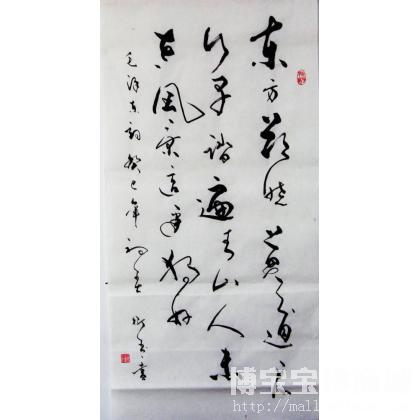 东方欲晓莫道君
行早踏遍青山人未
老風景這边独好
毛泽东词癸巳年初夏书
博宝
http://mall